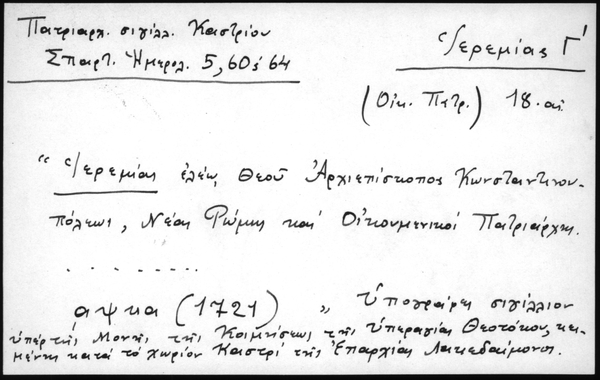 Πατριαρχ. σιγίλλ. Καστρίου
Σπαρτ. Ἡμερολ. 5, 60 ἑ 64
Ἱερεμίας Γ'
(Οἰκ. Πατρ.) 18. αἰ.
"Ἱερεμίας ἐλέῳ Θεοῦ Ἀρχιεπίσκοπος Κωνσταντινου-
πόλεως, Νέας Ρώμης καὶ Οἰκουμενικὸς Πατριάρχης.
. . . . . . . . .
αψκα (1721) " Ὑπογράφει σιγίλλιον
ὑπὲρ τῆς Μονῆς τῆς Κοιμήσεως τῆς Ὑπεραγίας Θεοτόκου, κει-
μένης κατὰ τὸ χωρίον Καστρὶ τῆς Ἐπαρχίας Λακεδαίμονος.